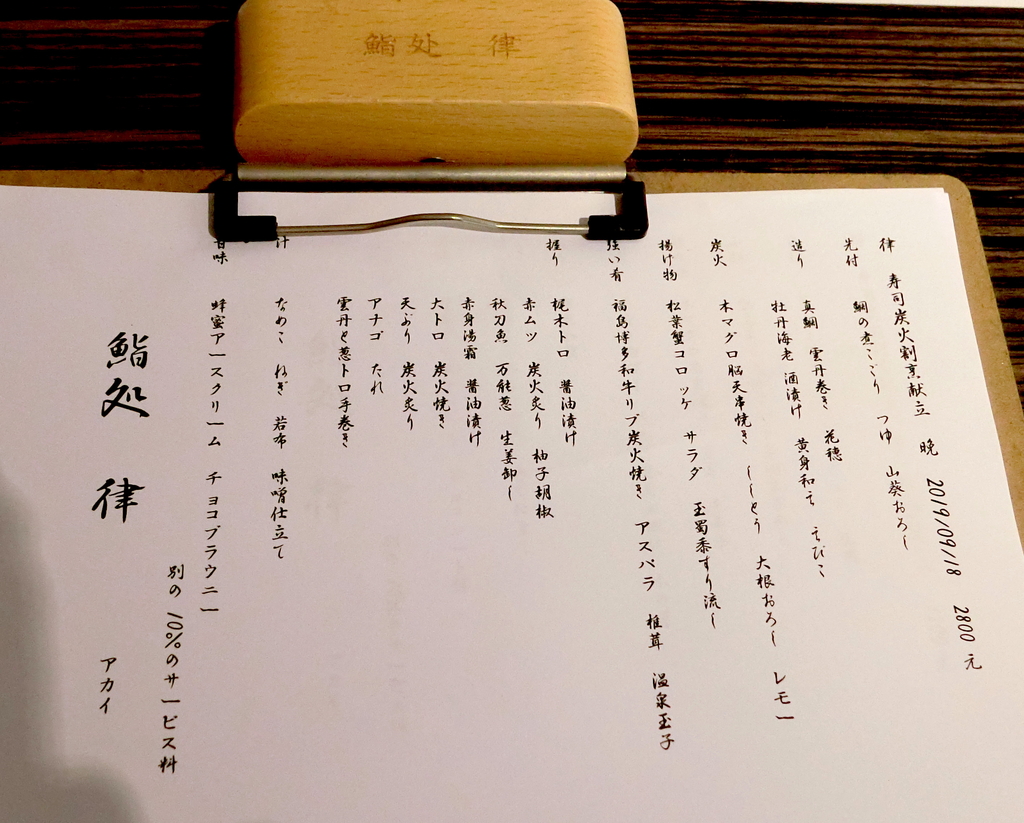 鮨处 律
律 寿司炭火割烹献立 晩 2019/09/18 2800 元
先付 鯛の煮こごり つゆ 山葵おろし
造り 真鯛 雲丹巻き 花穂
牡丹海老 酒漬け 黄身和え えびこ
炭火 本マグロ脳天串焼き ししとう 大根おろし レモー
揚げ物 松葉蟹コロッケ サラダ 玉蜀黍すり流し
強い肴 福島博多和牛リブ炭火焼き アスパラ 椎茸 温泉玉子
握り 梶木トロ 醤油漬け
赤ムツ 炭火炙り 柚子胡椒
秋刀魚 万能葱 生姜卸し
赤身湯霜 醤油漬け
大トロ 炭火焼き
天ぷり 炭火炙り
アナゴ たれ
雲丹と葱トロ手巻き
汁 なめこ ねぎ 若布 味噌仕立て
甘味 蜂蜜アースクリーム チョコブラウニー
別の 10%のサービス料
鮨处 律 アカイ